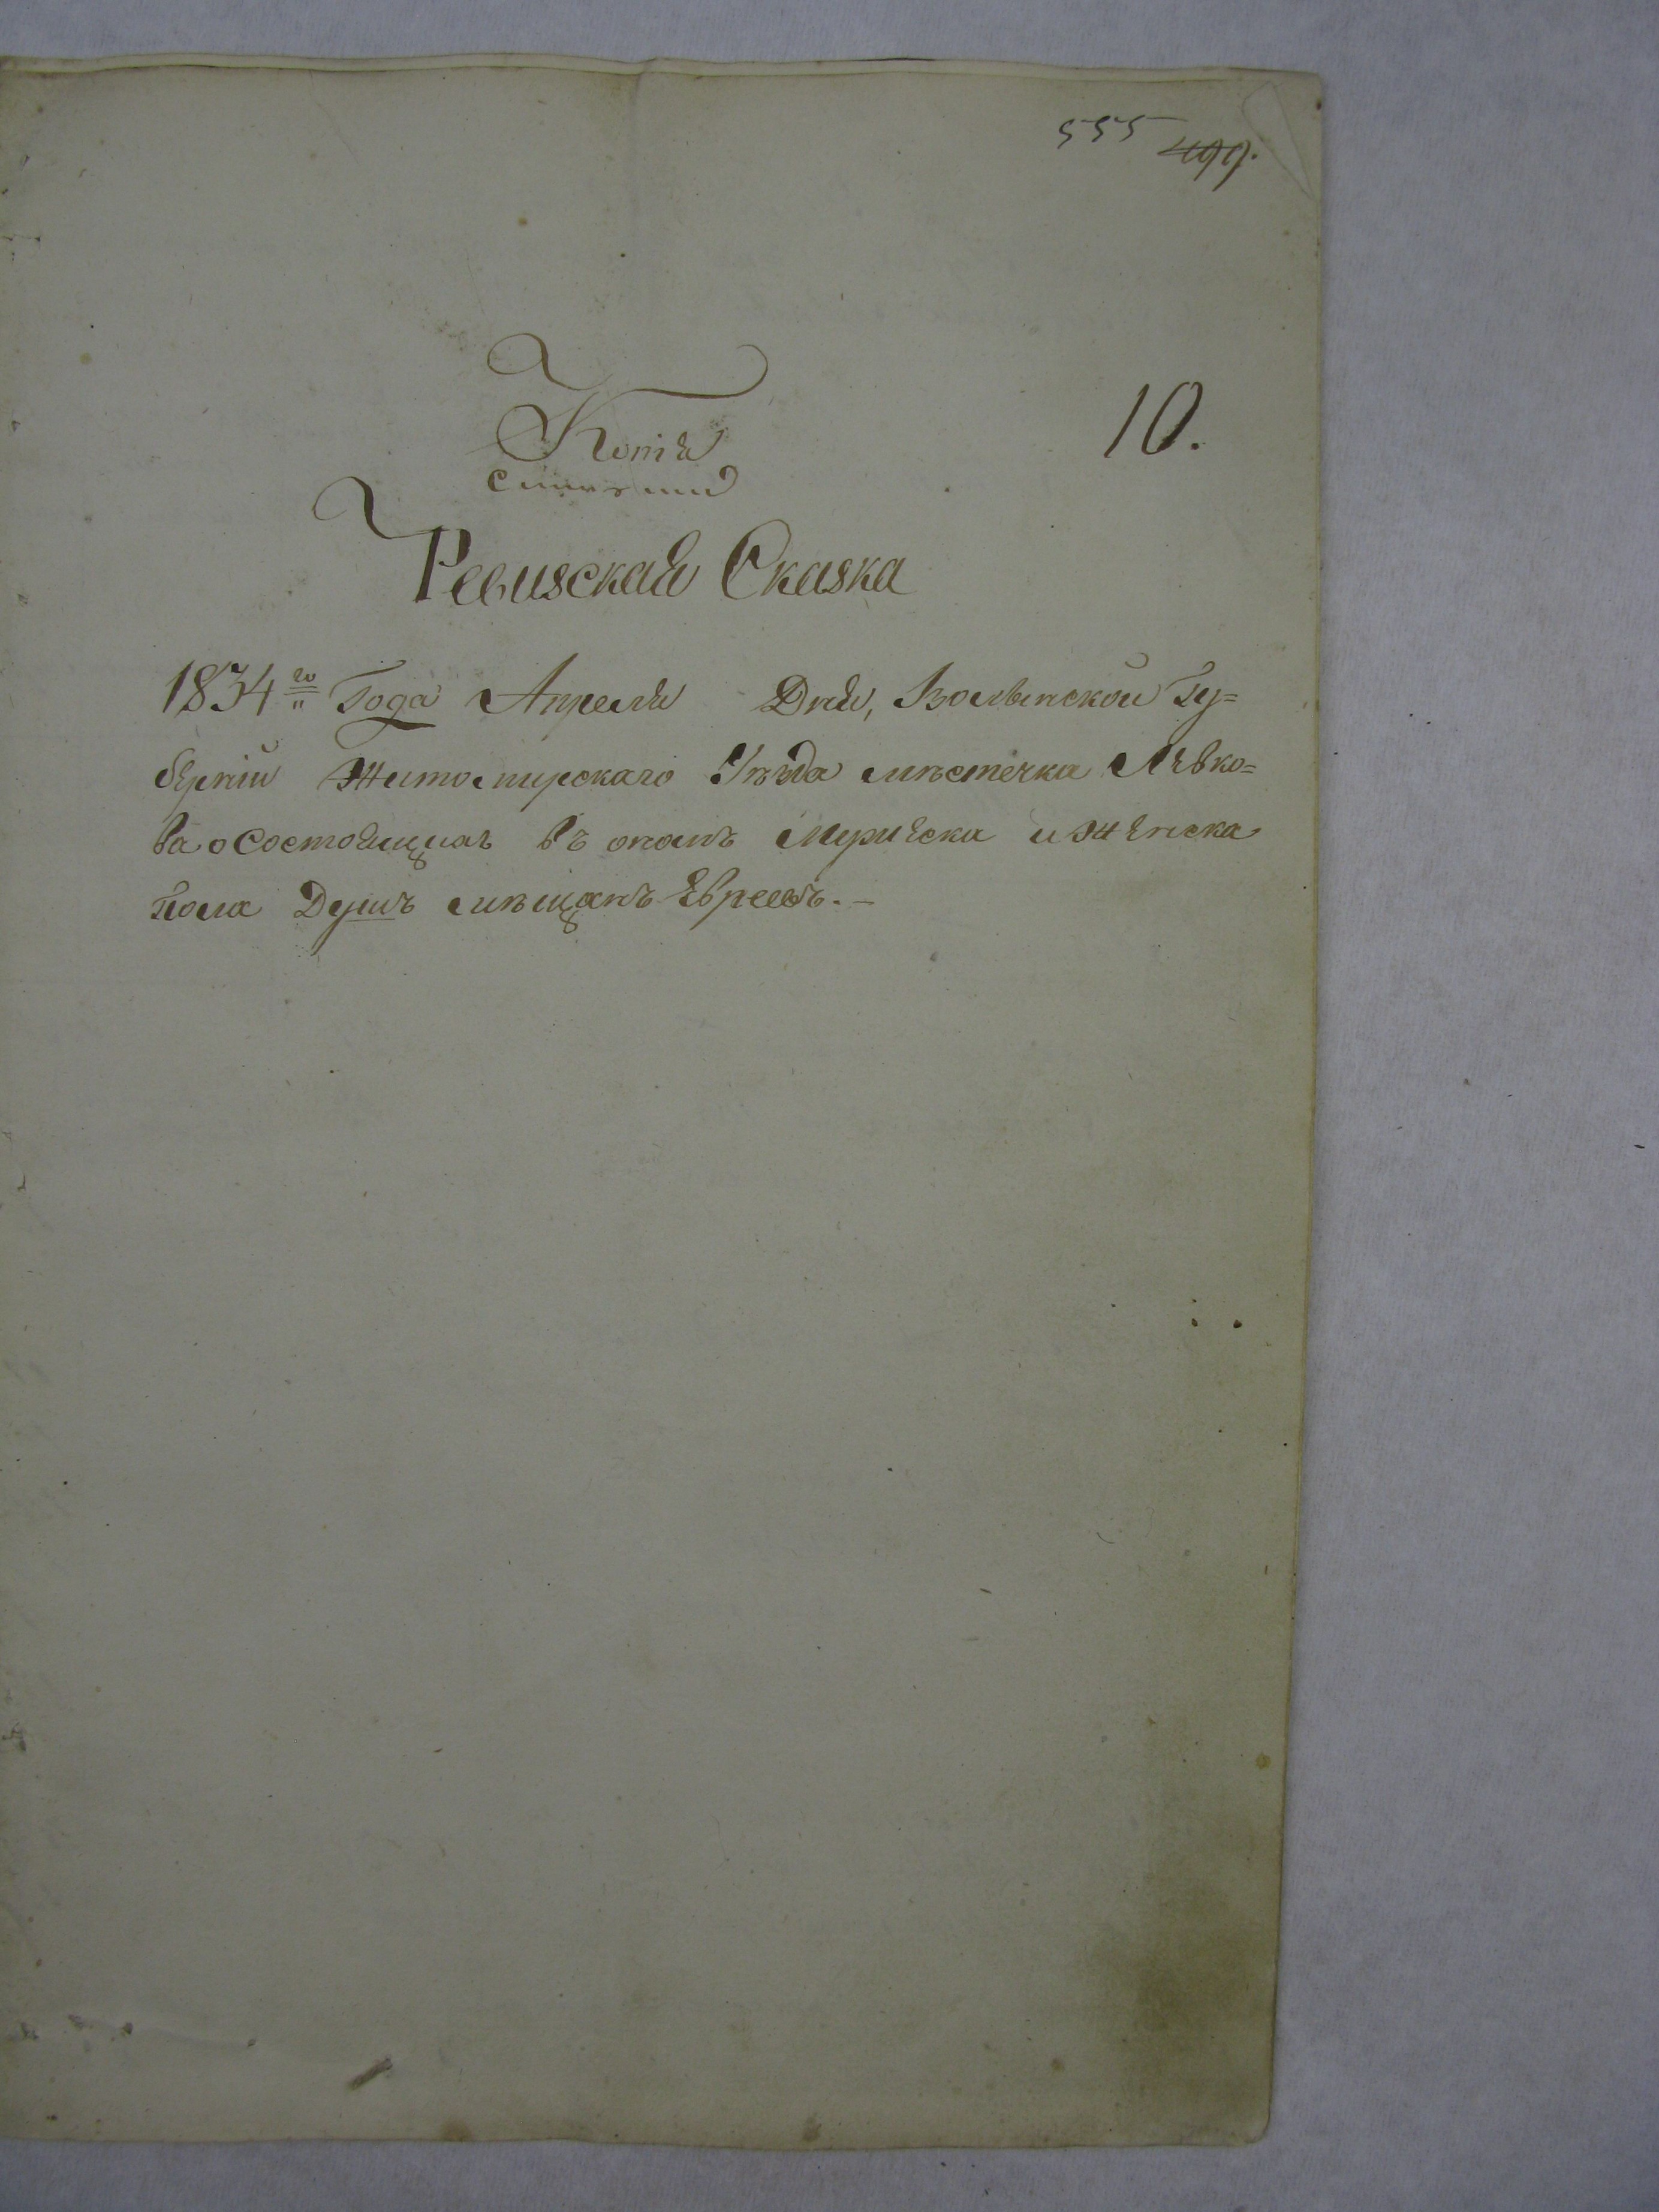 555 499.
10.
Копія
Ревизская Сказка
1834го Года Апреля Дня, Волынской Гу=
берніи Житомирскаго Уѣзда мѣстечка Левко=
ва о Состоящихъ въ ономъ Мужеска и Женска
пола Душъ мѣщанъ Евреевъ.-